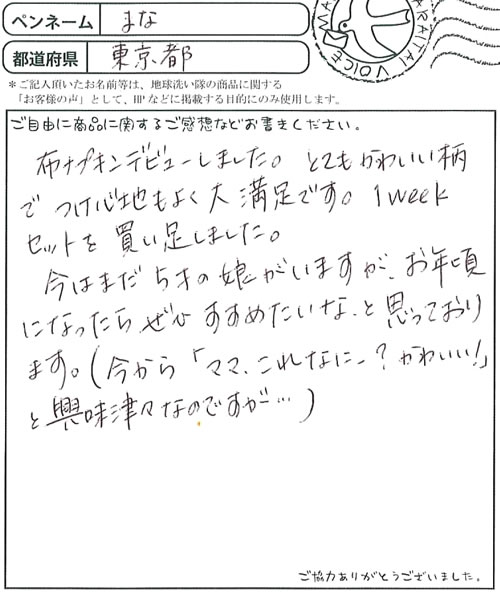 ペンネーム まな
都道府県 東京都
*ご記入頂いたお名前等は、地球洗い隊の商品に関する
「お客様の声」として、HPなどに掲載する目的にのみ使用します。
ご自由に商品に関するご感想などお書きください。
布ナプキンデビューしました。とてもかわいい柄
で つけ心地もよく大満足です。1week
セットを買い足しました。
今はまだ5才の娘がいますが、お年頃
になったらぜひすすめたいな、と思っており
ます。(今から「ママ、これなにー?かわいい!」
と興味津々なのですが…)
ご協力ありがとうございました。